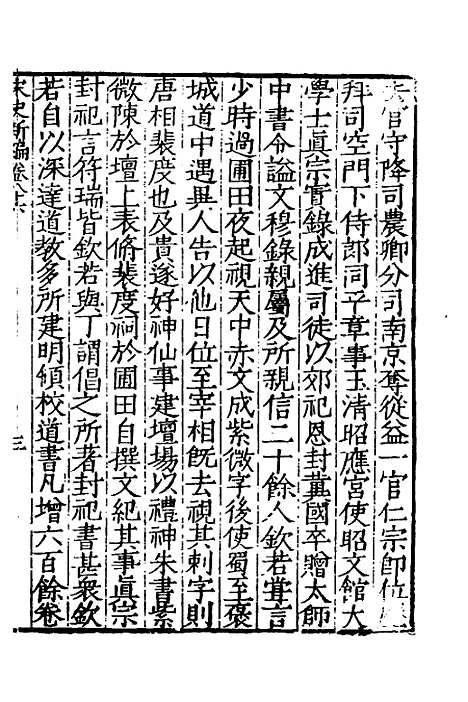 官守降司農卿分司南京奪從益一官仁宗即位
拜司空門下侍郎同平章事玉清昭應宮使昭文館大
學士眞宗實錄成進司徒以郊祀恩封冀國卒贈太師
中書令謚文穆錄親屬及所親信二十餘人欽若甞言
少時過圃田夜起視天中赤文成紫微字後使蜀至褒
城道中遇異人告以他日位至宰相既去視其刺字則
唐相裴度也及貴遂好神仙事建壇場以禮神朱書紫
微陳於壇上表脩裴度祠於圃田自撰文紀其事眞宗
封祀言符瑞皆欽若與丁謂倡之所著封祀書甚衆欽
若自以深達道教多所建明領校道書凡增六百餘卷
宋史新編卷八十六
三